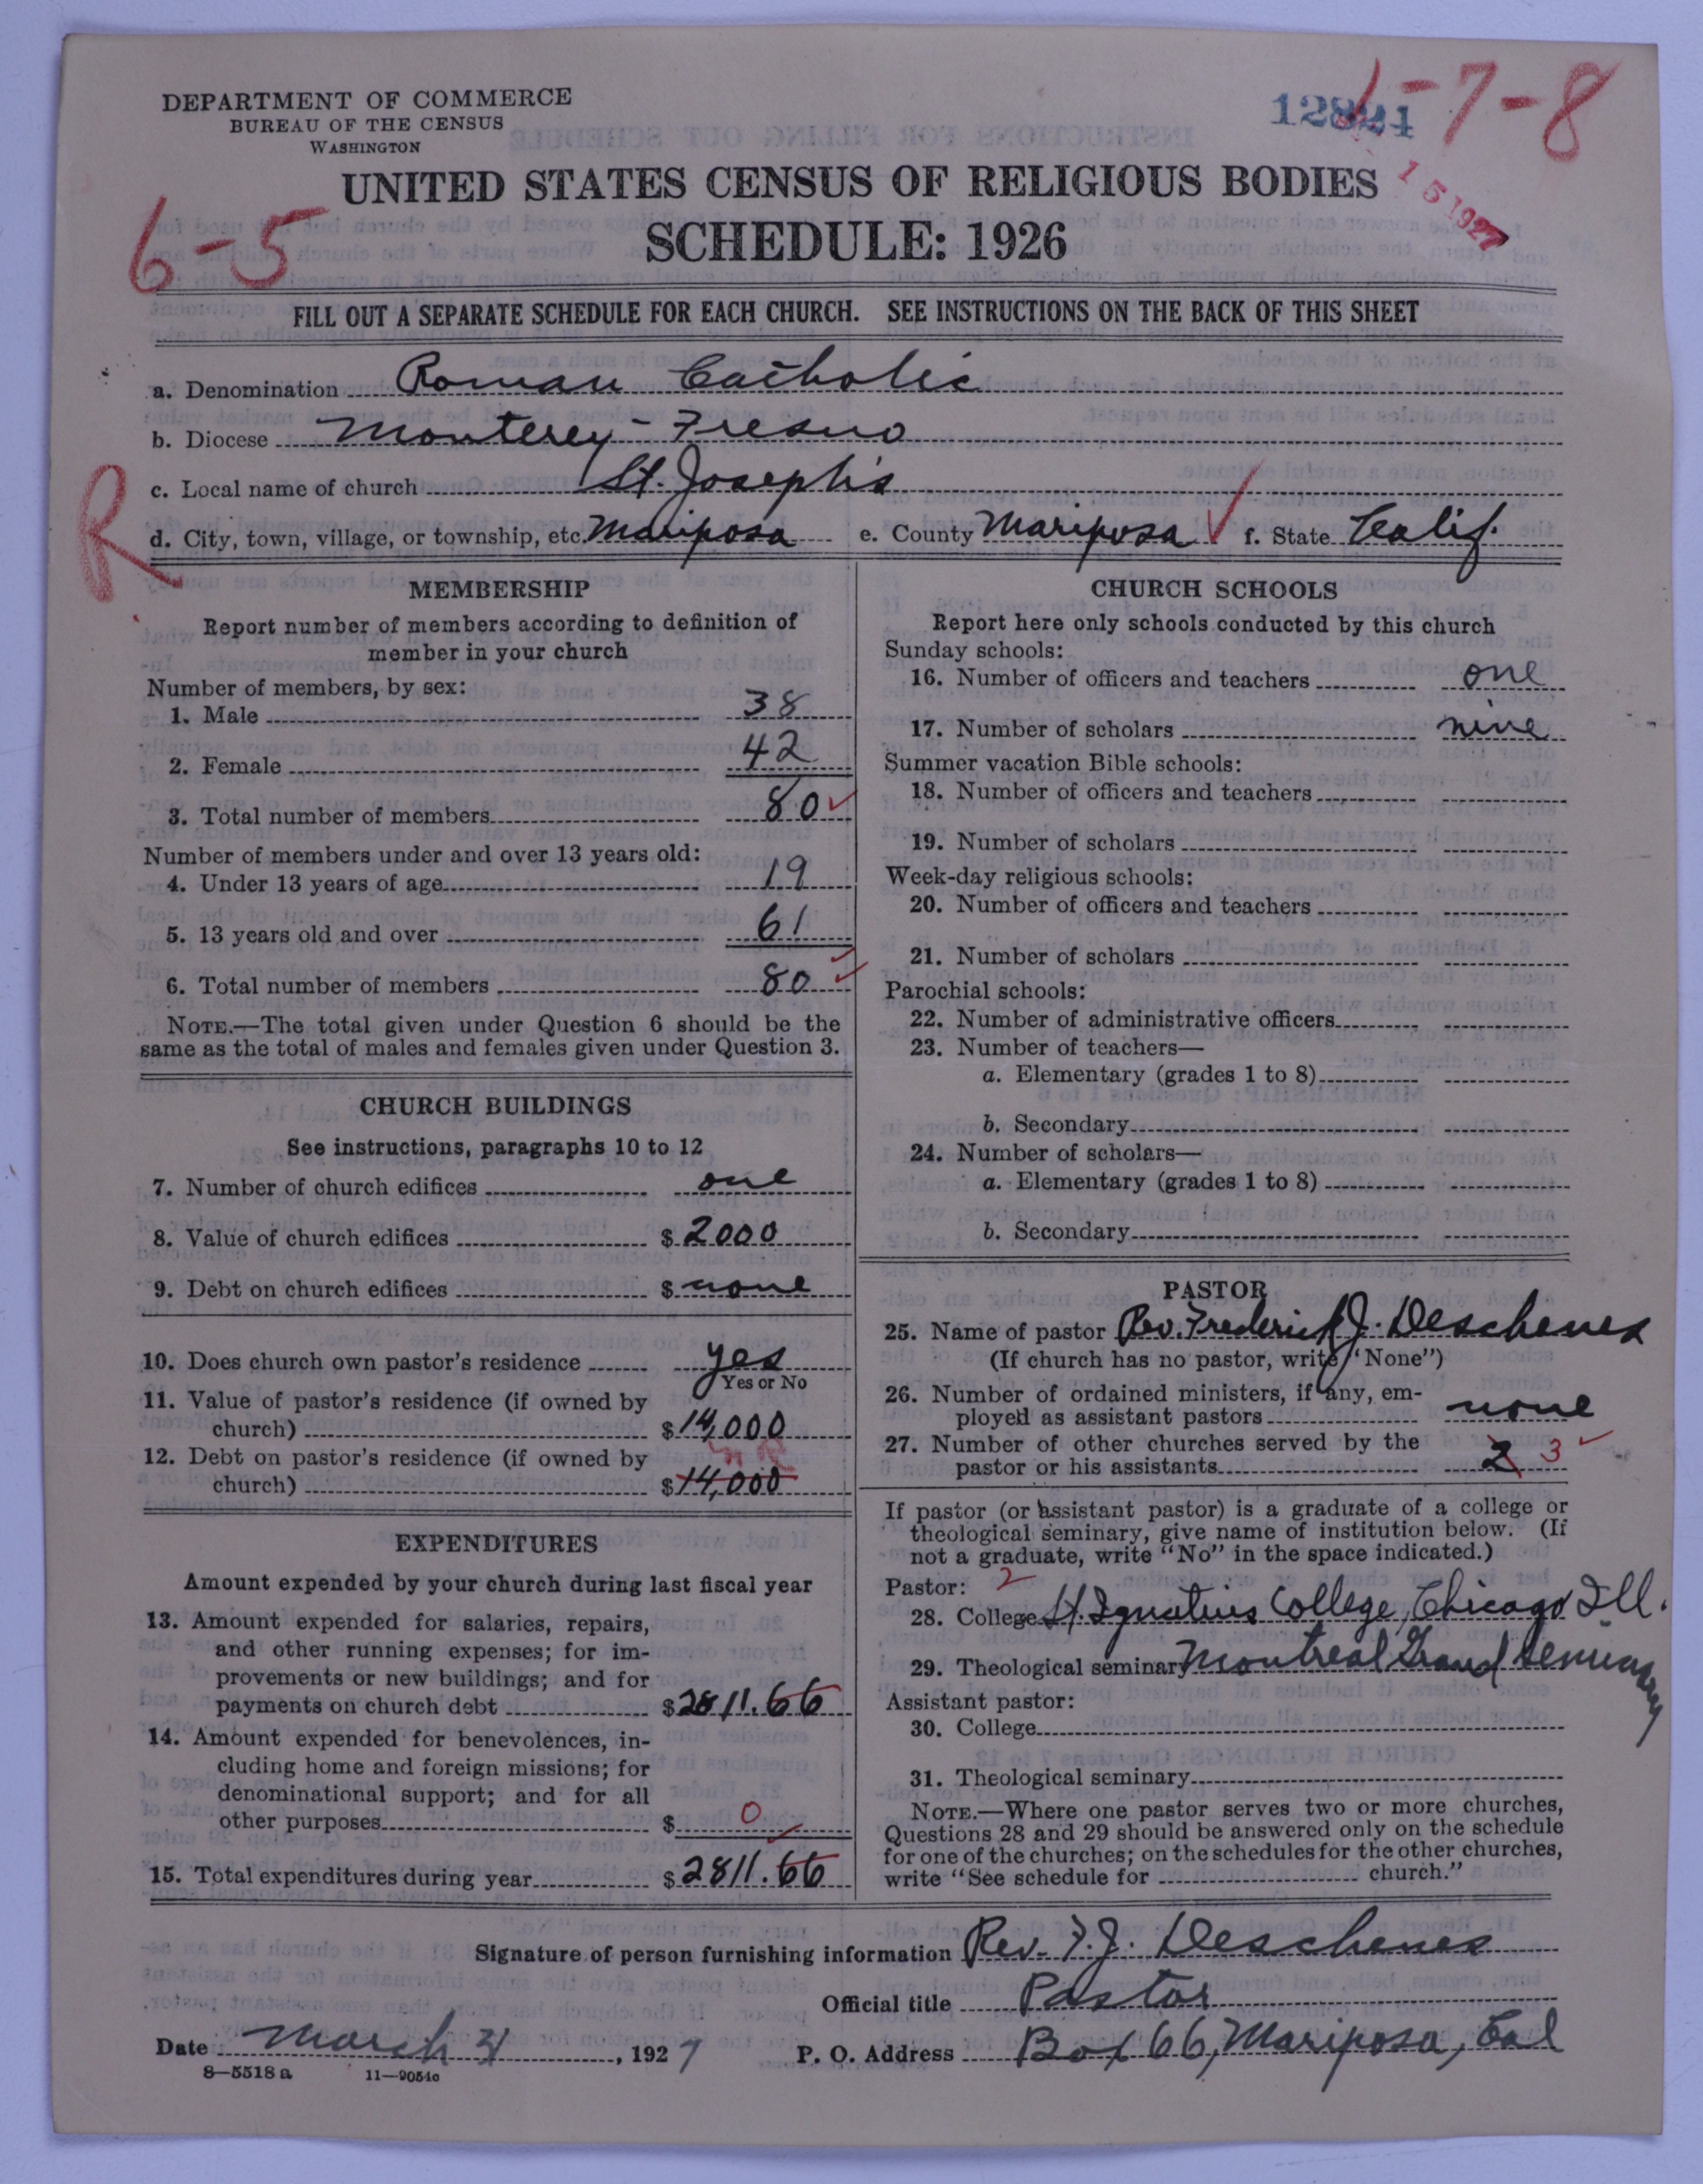 DEPARTMENT OF COMMERCE
BUREAU OF THE CENSUS
WASHINGTON
1-7-8
UNITED STATES CENSUS OF RELIGIOUS BODIES
15 1927
6-5
SCHEDULE: 1926
FILL OUT A SEPARATE SCHEDULE FOR EACH CHURCH. SEE INSTRUCTIONS ON THE BACK OF THIS SHEET
a. Denomination Roman Catholic
b. Diocese Monterey-Fresno
c. Local name of church St. Joseph's
R
d. City, town, village, or township, etc. Mariposa e. County Mariposa ✓ f. State Calif.
MEMBERSHIP
Report number of members according to definition of
member in your church
Number of members, by sex:
1. Male 38
2. Female 42
3. Total number of members 80 ✓
Number of members under and over 13 years old:
4. Under 13 years of age 19
5. 13 years old and over 61
6. Total number of members 80 ✓
NOTE.—The total given under Question 6 should be the
same as the total of males and females given under Question 3.
CHURCH BUILDINGS
See instructions, paragraphs 10 to 12
7. Number of church edifices one
8. Value of church edifices $2000
9. Debt on church edifices $none
10. Does church own pastor's residence yes
Yes or No
11. Value of pastor's residence (if owned by
church) $14,000
12. Debt on pastor's residence (if owned by
church) $14,000
EXPENDITURES
Amount expended by your church during last fiscal year
13. Amount expended for salaries, repairs,
and other running expenses; for im-
provements or new buildings; and for
payments on church debt $2811.66
14. Amount expended for benevolences, in-
cluding home and foreign missions; for
denominational support; and for all
other purposes $ 0
15. Total expenditures during year $2811.66
CHURCH SCHOOLS
Report here only schools conducted by this church
Sunday schools:
16. Number of officers and teachers one
17. Number of scholars nine
Summer vacation Bible schools:
18. Number of officers and teachers
19. Number of scholars
Week-day religious schools:
20. Number of officers and teachers
21. Number of scholars
Parochial schools:
22. Number of administrative officers
23. Number of teachers—
a. Elementary (grades 1 to 8)
b. Secondary
24. Number of scholars—
a. Elementary (grades 1 to 8)
b. Secondary
PASTOR
25. Name of pastor Rev. Frederick J. Deschenes
(If church has no pastor, write "None")
26. Number of ordained ministers, if any, em-
ployed as assistant pastors none
27. Number of other churches served by the
pastor or his assistants 2 3 ✓
If pastor (or assistant pastor) is a graduate of a college or
theological seminary, give name of institution below. (If
not a graduate, write "No" in the space indicated.)
Pastor: 2
28. College St. Ignatius College, Chicago Ill.
29. Theological seminary Montreal Grand Seminary
Assistant pastor:
30. College
31. Theological seminary
NOTE.—Where one pastor serves two or more churches,
Questions 28 and 29 should be answered only on the schedule
for one of the churches; on the schedules for the other churches,
write "See schedule for church."
Signature of person furnishing information Rev. F. J. Deschenes
Official title Pastor
Date March 31, 1927 P. O. Address Box 66, Mariposa, Cal
8—5518 a 11—9054c